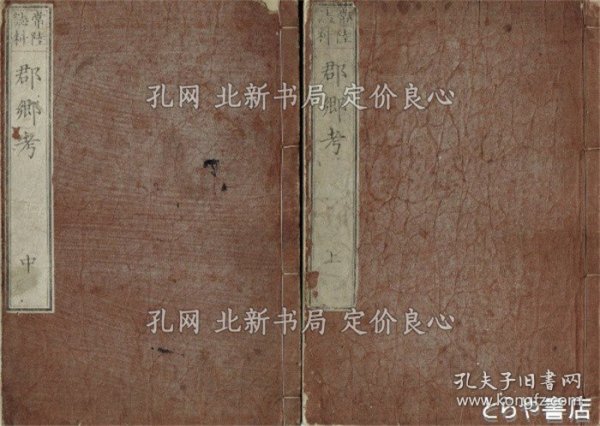 常陸
誌料
郡郷考
中
常陸
誌料
郡郷考
上
孔网 北新书局 定价良心
孔网 北新书局 定价良心
孔夫子旧书网
www.kongfz.com
とらや書店